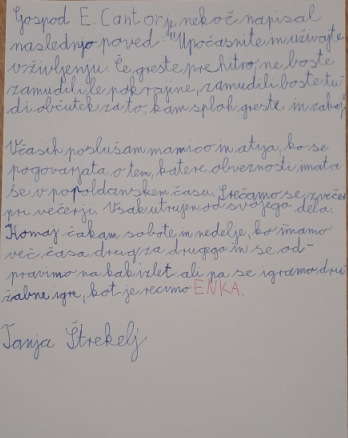 Gospod E. Cantor je nekoč napisal
naslednjo poved: "Upočasnite in uživajte
v življenju. Če greste prehitro, ne boste
zamudili le pokrajine, zamudili boste tu-
di občutek za to, kam sploh greste in zakaj."
Včasih poslušam mamico in atija, ko se
pogovarjata o tem, katere obveznosti imata
še v popoldanskem času. Srečamo se zvečer
pri večerji. Vsak utrujen od svojega dela.
Komaj čakam sobote in nedelje, ko imamo
več časa drug za drugega in se od-
pravimo na kak izlet ali pa se igramo dru-
žabne igre, kot je recimo ENKA.
Tanja Štrekelj